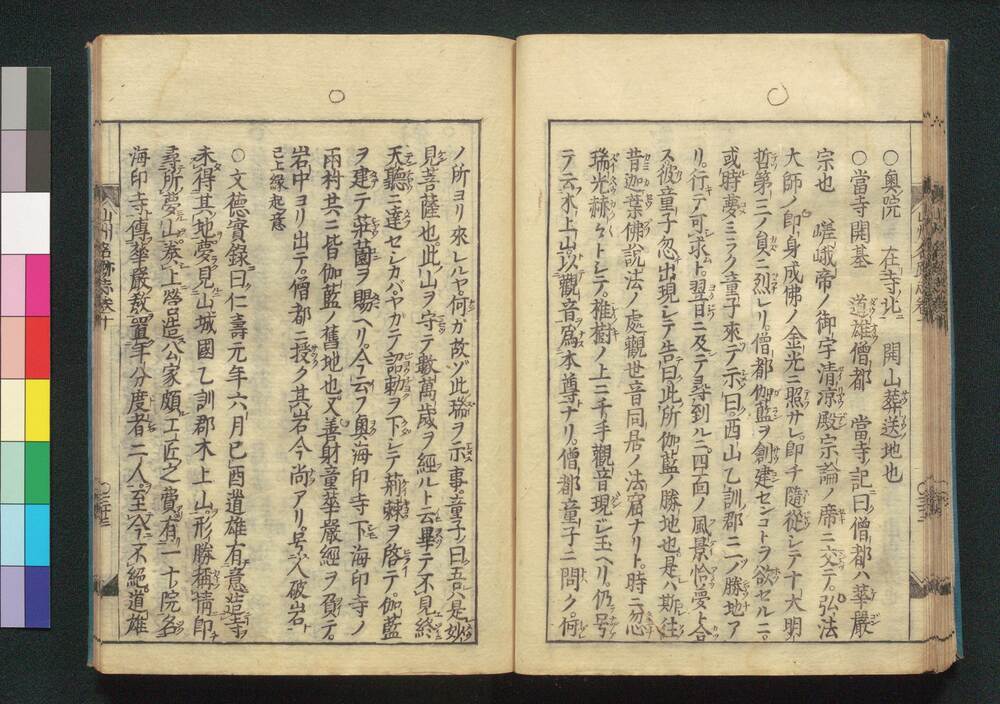 〇奥院　在寺北　開山葬送地也
〇當寺開基　道雄僧都　當寺記曰僧都ハ華嚴
宗也　嵯峨帝ノ御宇清凉殿宗論ノ席ニ交テ。弘法
大師ノ即身成佛ノ金光ニ照サレ。即チ隨從シテ十大明
哲第三ノ員ニ烈レリ。僧都伽藍ヲ創建センコトヲ欲セルニ。
或時夢ミラク童子來テ示曰。西山乙訓郡ニ一ノ勝地ア
リ。行テ可求ト。翌日ニ及テ尋到ルニ。四面ノ風景恰夢ト合
ス。彼童子忽出現シテ告曰。此所伽藍ノ勝地也。是ハ斯往
昔迦葉佛說法ノ處觀世音同居ノ法窟ナリト。時ニ忽
瑞光赫々トシテ。椎樹ノ上ニ千手觀音現シ玉ヘリ。仍号
テ云木上山。以觀音爲本尊ナリ。僧都童子ニ問ク。何
ノ所ヨリ來レルヤ。何カ故ソ此瑞ヲ示事。童子ノ曰吾ハ是妙
見菩薩也。此山ヲ守テ數萬歲ヲ經ルト云畢テ不見。終
天聽ニ達セシカハ。ヤカテ詔勅ヲ下シテ荊棘ヲ啓テ。伽藍
ヲ建テ莊薗ヲ賜ヘリ。今云フ奥海印寺下海印寺ノ
兩村共ニ皆伽藍ノ舊地也。又善財童華嚴經ヲ負テ。
岩中ヨリ出テ。僧都ニ授ク其岩今尚アリ。呼人破岩ト
已上緣起意
〇文德實錄曰仁壽元年六月己酉道雄有意造寺
未得其地夢見山城國乙訓郡木上山。形勝稱情。即
尋所夢山奏上啓造。公家頗工匠之費有一十院名
海印寺傳華嚴教置年分度者二人。至今不絕。道雄
山州名跡志卷十